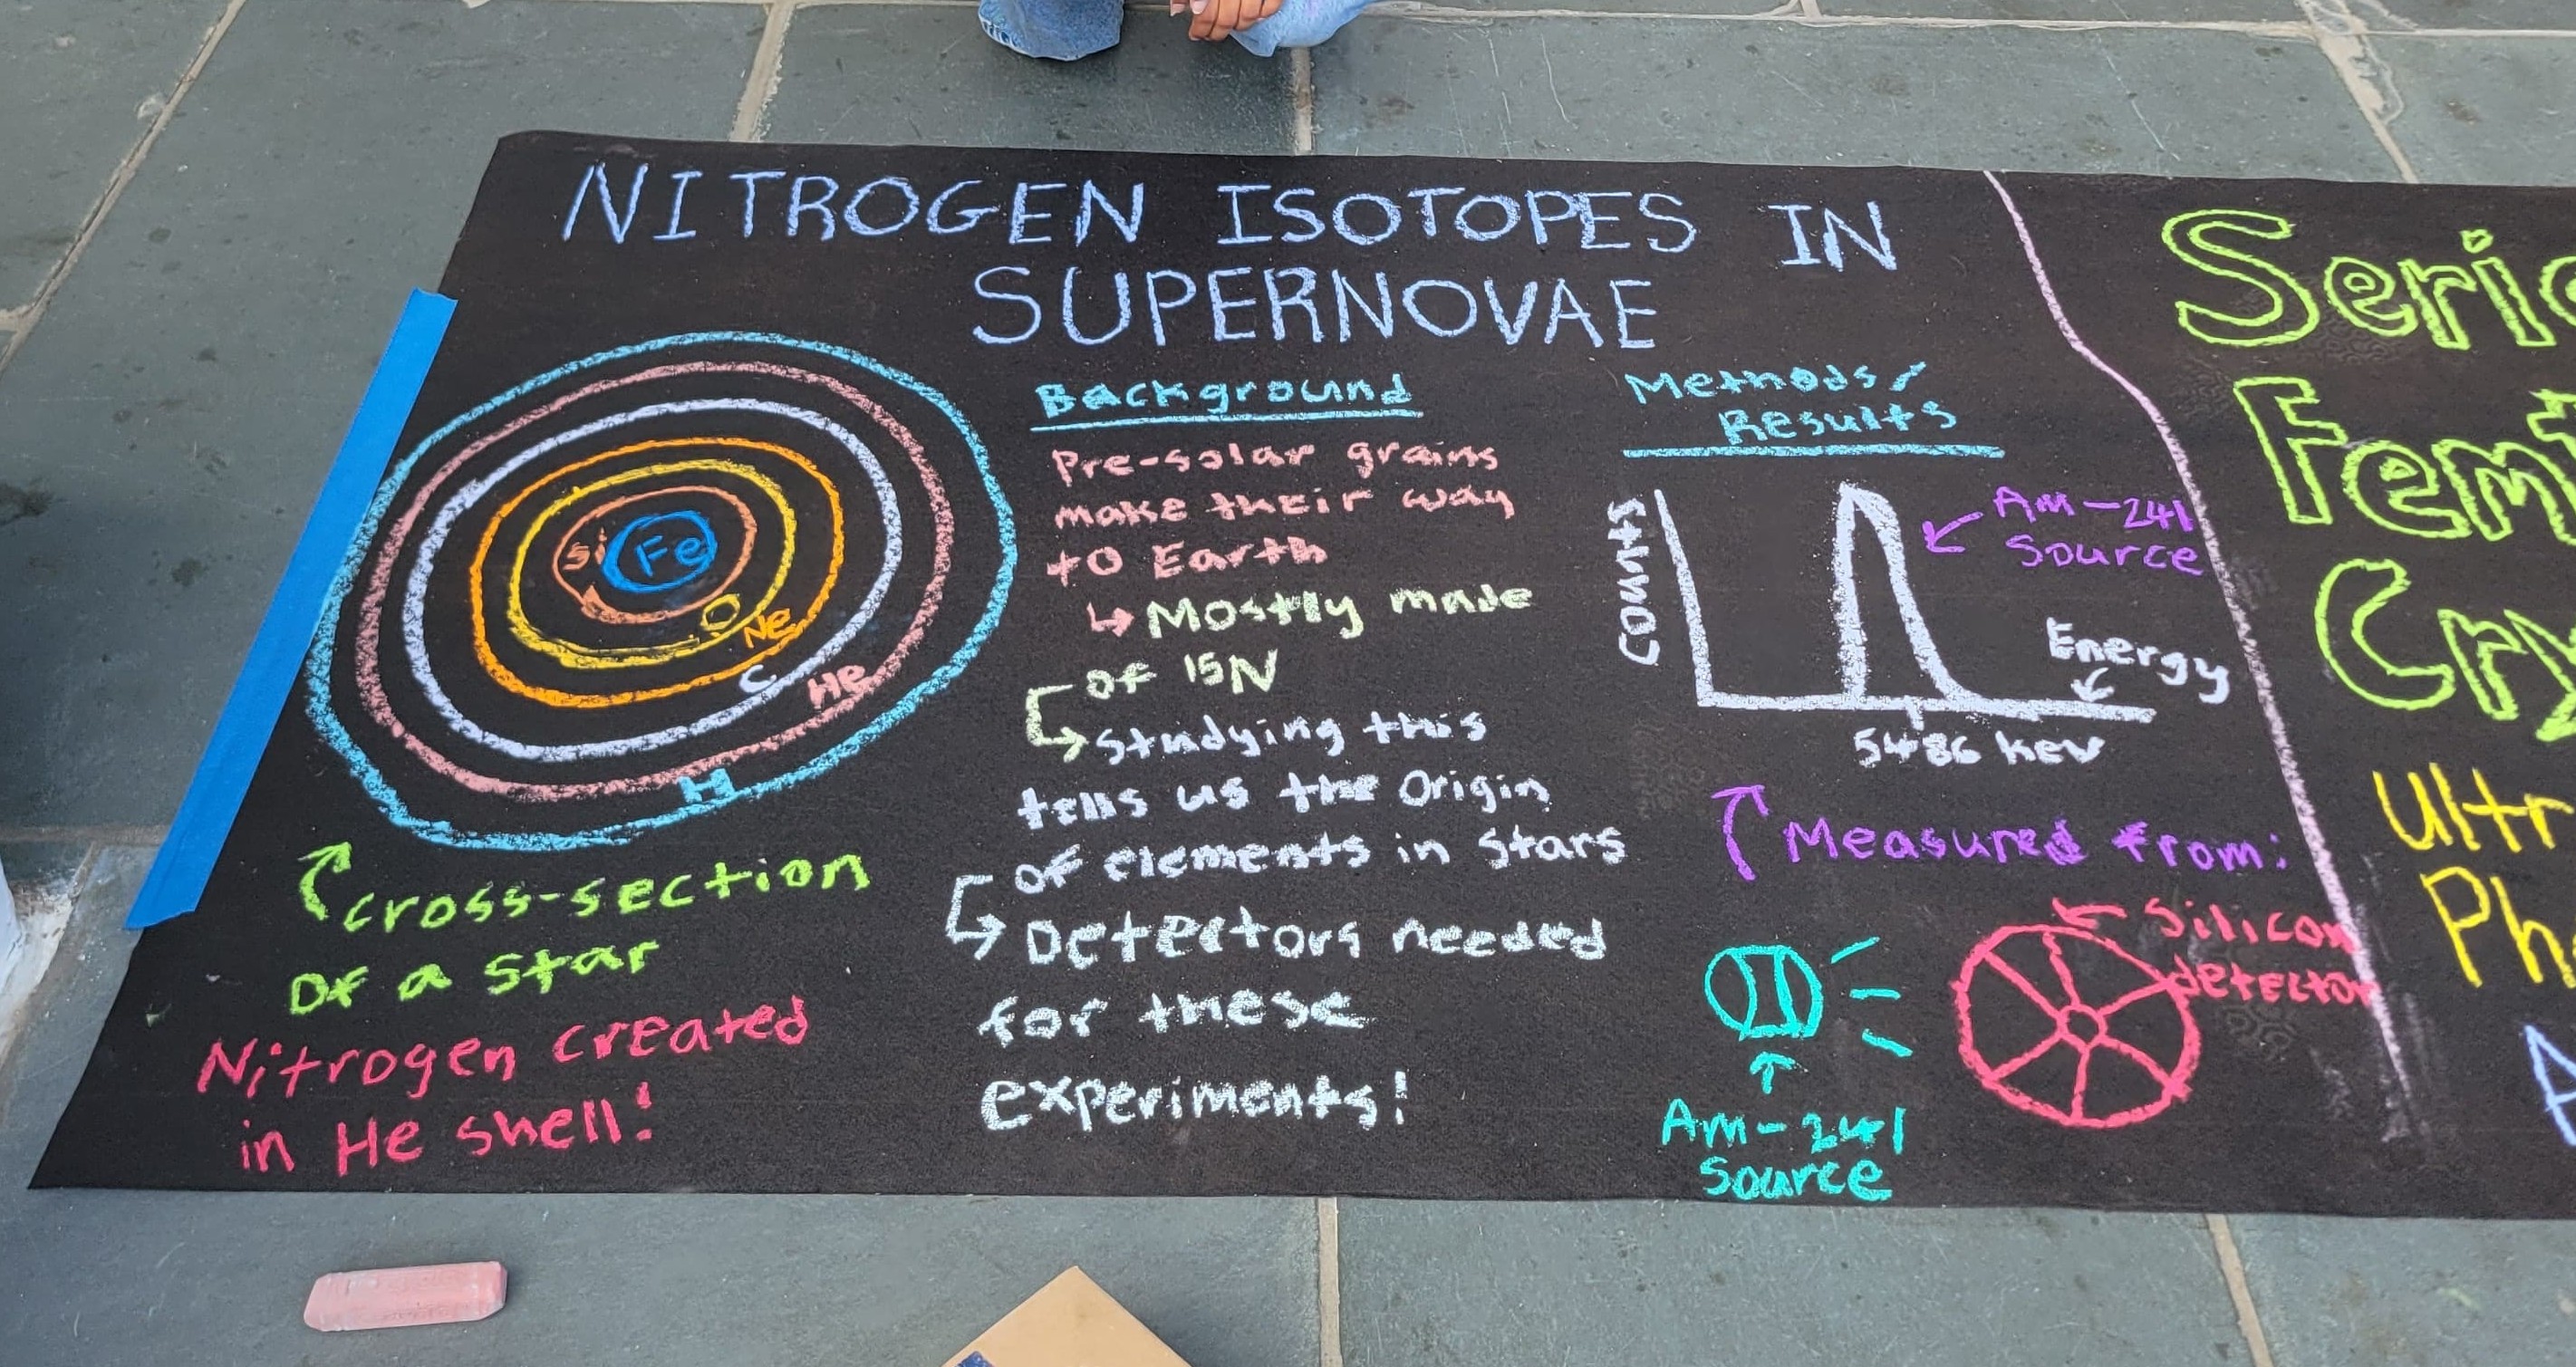 NITROGEN ISOTOPES IN
SUPERNOVAE
Si
Fe
O
Ne
C
He
H
cross-section
of a star
Nitrogen created
in He shell!
Background
Pre-solar grains
make their way
to Earth
Mostly made
of 15N
studying this
tells us the origin
of elements in stars
Detectors needed
for these
experiments!
Methods/
Results
Counts
Am-241
Source
Energy
5486 kev
Measured from:
Silicon
detector
Am-241
Source